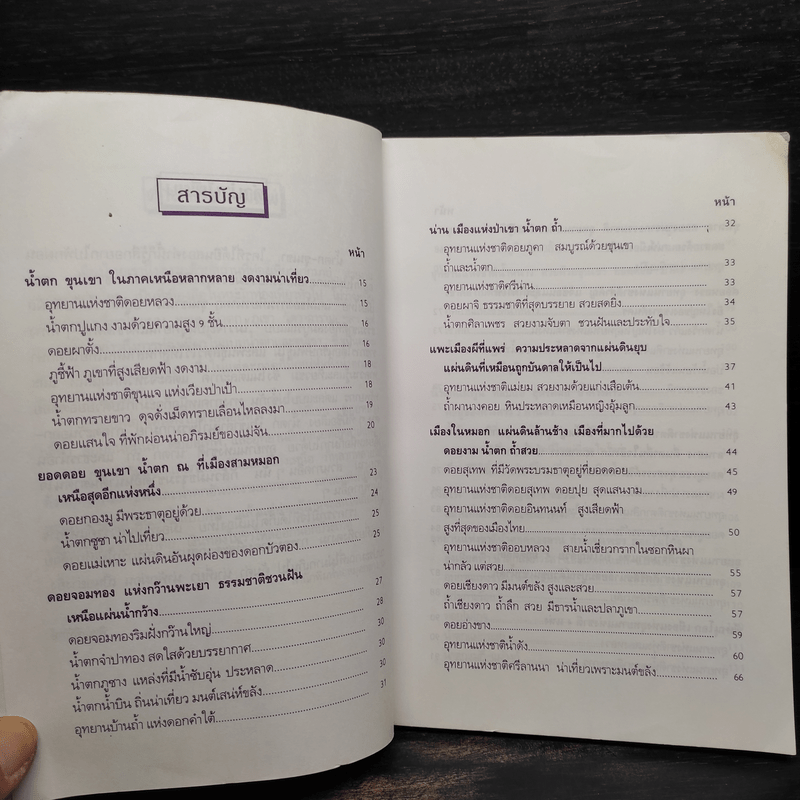 สารบัญ
หน้า
น้ำตก ขุนเขา ในภาคเหนือหลากหลาย งดงามน่าเที่ยว 15
อุทยานแห่งชาติดอยหลวง 15
น้ำตกปูแกง งามด้วยความสูง 9 ชั้น 16
ดอยผาตั้ง 16
ภูชี้ฟ้า ภูเขาที่สูงเสียดฟ้า งดงาม 18
อุทยานแห่งชาติขุนแจ แห่งเวียงป่าเป้า 18
น้ำตกทรายขาว ดุจดั่งเม็ดทรายเลื่อนไหลลงมา 19
ดอยแสนใจ ที่พักผ่อนน่าอภิรมย์ของแม่จัน 20
ยอดดอย ขุนเขา น้ำตก ณ ที่เมืองสามหมอก
เหนือสุดอีกแห่งหนึ่ง 23
ดอยกองมู มีพระธาตุอยู่ด้วย 24
น้ำตกซูซา น่าไปเที่ยว 25
ดอยแม่เหาะ แผ่นดินอันผุดผ่องของดอกบัวตอง 25
ดอยจอมทอง แห่งกว๊านพะเยา ธรรมชาติชวนฝัน
เหนือแผ่นน้ำกว้าง 27
ดอยจอมทองริมฝั่งกว๊านใหญ่ 28
น้ำตกจำปาทอง สดใสด้วยบรรยากาศ 30
น้ำตกภูซาง แหล่งที่มีน้ำซับอุ่น ประหลาด 30
น้ำตกน้ำบิน ถิ่นน่าเที่ยว มนต์เสน่ห์ขลัง 30
อุทยานบ้านถ้ำ แห่งดอกคำใต้ 31
หน้า
น่าน เมืองแห่งป่าเขา น้ำตก ถ้ำ 32
อุทยานแห่งชาติดอยภูคา สมบูรณ์ด้วยขุนเขา
ถ้ำและน้ำตก 33
อุทยานแห่งชาติศรีน่าน 33
ดอยผาจิ ธรรมชาติที่สุดบรรยาย สวยสดยิ่ง 34
น้ำตกศิลาเพชร สวยงามจับตา ชวนฝันและประทับใจ 35
แพะเมืองผีที่แพร่ ความประหลาดจากแผ่นดินยุบ
แผ่นดินที่เหมือนถูกบันดาลให้เป็นไป 37
อุทยานแห่งชาติแม่ยม สวยงามด้วยแก่งเสือเต้น 41
ถ้ำผานางคอย หินประหลาดเหมือนหญิงอุ้มลูก 43
เมืองในหมอก แผ่นดินล้านช้าง เมืองที่มากไปด้วย
ดอยงาม น้ำตก ถ้ำสวย 44
ดอยสุเทพ ที่มีวัดพระบรมธาตุอยู่ที่ยอดดอย 45
อุทยานแห่งชาติดอยสุเทพ ดอยปุย สุดแสนงาม 49
อุทยานแห่งชาติดอยอินทนนท์ สูงเสียดฟ้า
สูงที่สุดของเมืองไทย 50
อุทยานแห่งชาติออบหลวง สายน้ำเชี่ยวกรากในซอกหินผา
น่ากลัว แต่สวย 55
ดอยเชียงดาว มีมนต์ขลัง สูงและสวย 57
ถ้ำเชียงดาว ถ้ำลึก สวย มีธารน้ำและปลาภูเขา 57
ดอยอ่างขาง 59
อุทยานแห่งชาติน้ำดัง 60
อุทยานแห่งชาติศรีลานนา น่าเที่ยวเพราะมนต์ขลัง 66